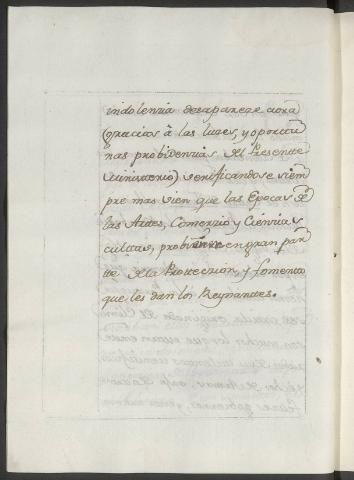 indolenzia desapareze aora
(gracias â las luzes, y oportu
nas probidenzias del Presente
Ministerio) verificandose siem
pre mas vien que las Epocas de
las Artes, Comerzio y Ciénzias
cultas, probienen en gran par
te de la Proteczion, y fomento
que les dan los Reynantes.